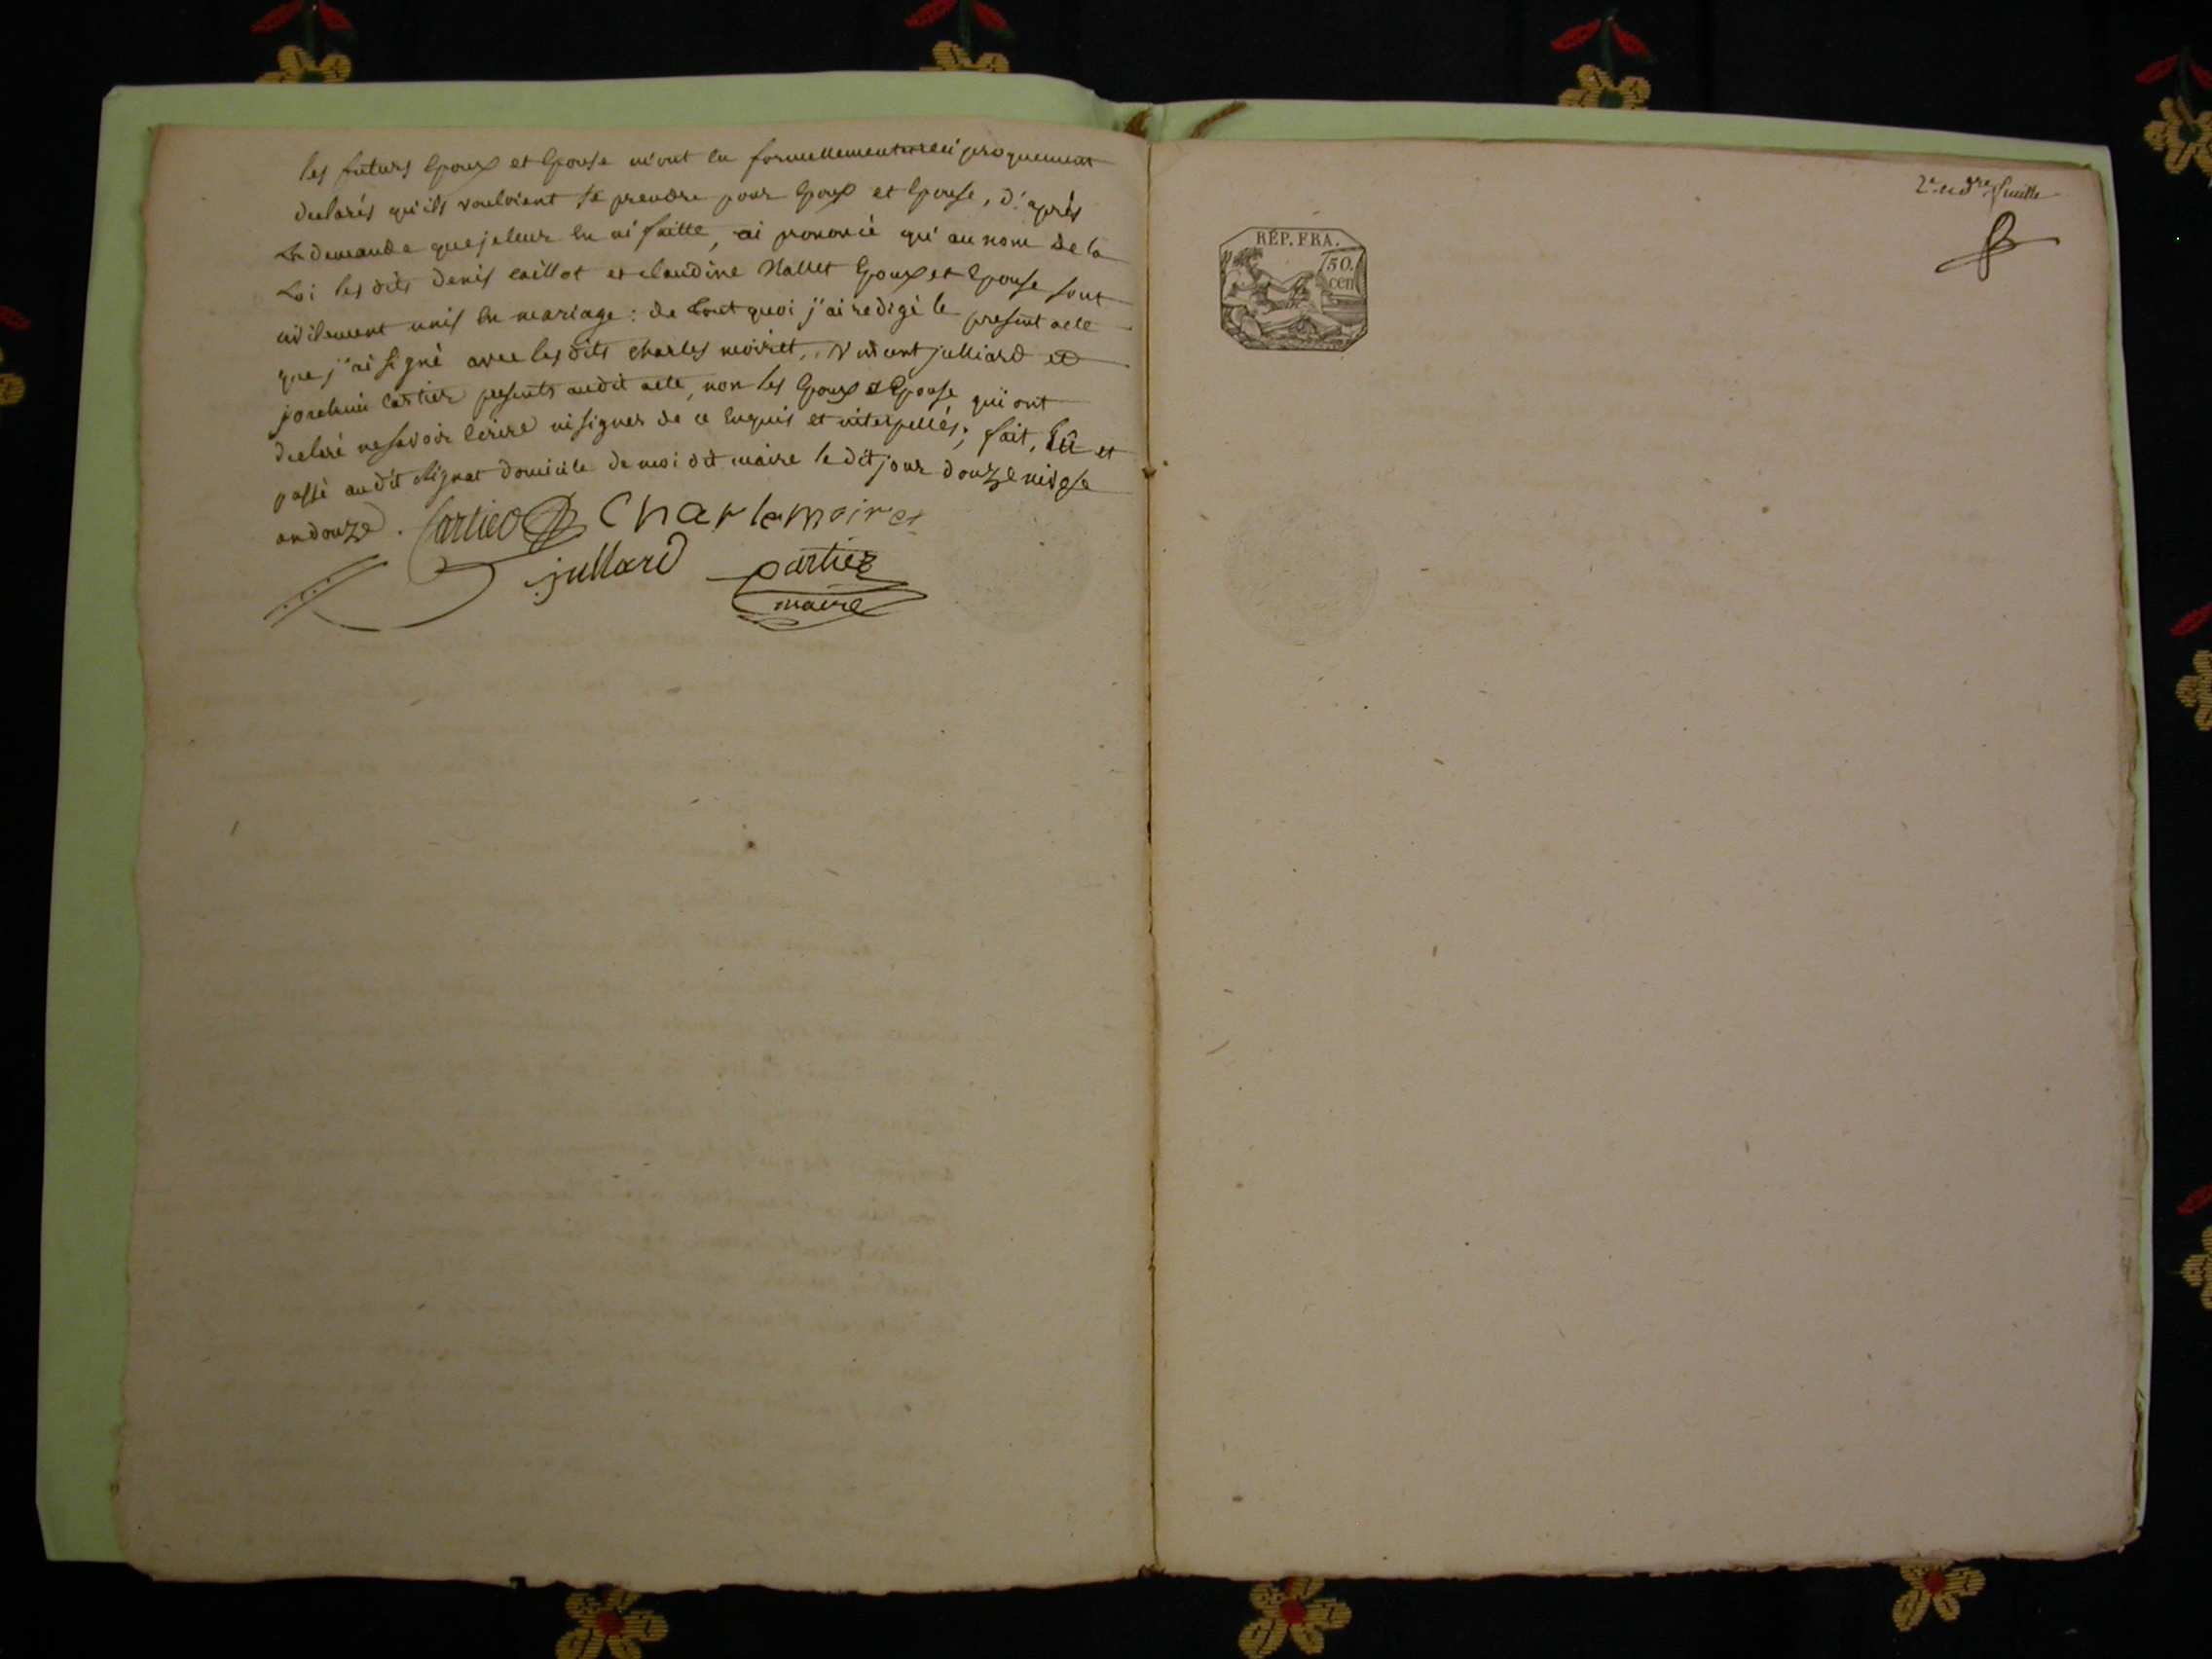 les futurs Epoux et Epouse m'ont en formellement et reciproquement
declarés qu'ils vouloient se prendre pour Epoux et Epouse, d'après
La demande que je leur en ai faitte, ai prononcé qu'au nom de la
Loi les dits denis caillot et claudine Nallet Epoux et Epouse sont
civilement unis en mariage: de tout quoi j'ai redigé le present acte
que j'ai signé avec les dits charles moiret, Vincent julliard et
joachim Cartier presents audit acte, non les Epoux et Epouse qui ont
declaré ne savoir Ecrire ni signer de ce Enquis et interpellés; fait, Lû et
passé au dit Clignat domicile de moi dit maire le dit jour douze nivose
an douze. Cartier Charle moiret
jullard Cartier
maire
2e. et dre. feuille
RÉP. FRA.
50.
cen